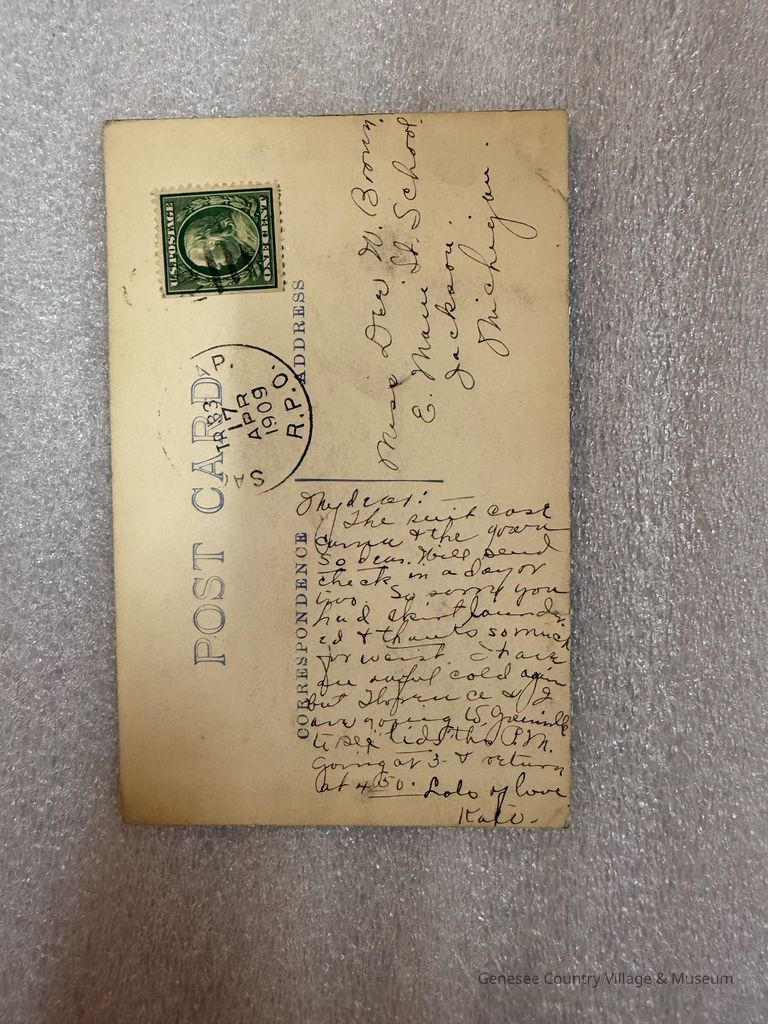 POST CARD
U.S. POSTAGE
ONE CENT
P.
TR 83
17
APR
1909
R.P.O.
ADDRESS
Miss Dee W. Brown.
E. Main St. School.
Jackson.
Michigan.
CORRESPONDENCE
My dear:
The suit case
came & the gown
so dear. Will send
check in a day or
two. So sorry you
had skirt launder-
ed & thanks so much
for waist. I have
an awful cold again
but Florence & I
are going to Greenville
to see this P.M.
Going at 3 & return
at 4:50. Lots of love
Kate.
Genesee Country Village & Museum